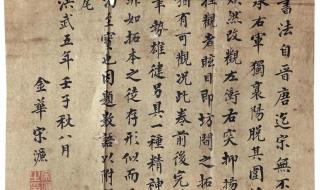 書法自晉唐迄宋無不
承右軍獨襄陽脫其圍
煥然改觀左衝右突抑揚
往觀者眩目即坊間之拓
猶有可觀況此卷前後完
筆勢雄健另具一種精神
非如拓本之徒存形似而
寶也因題數語以附
尾
洪武五年壬子秋八月
金華宋濂